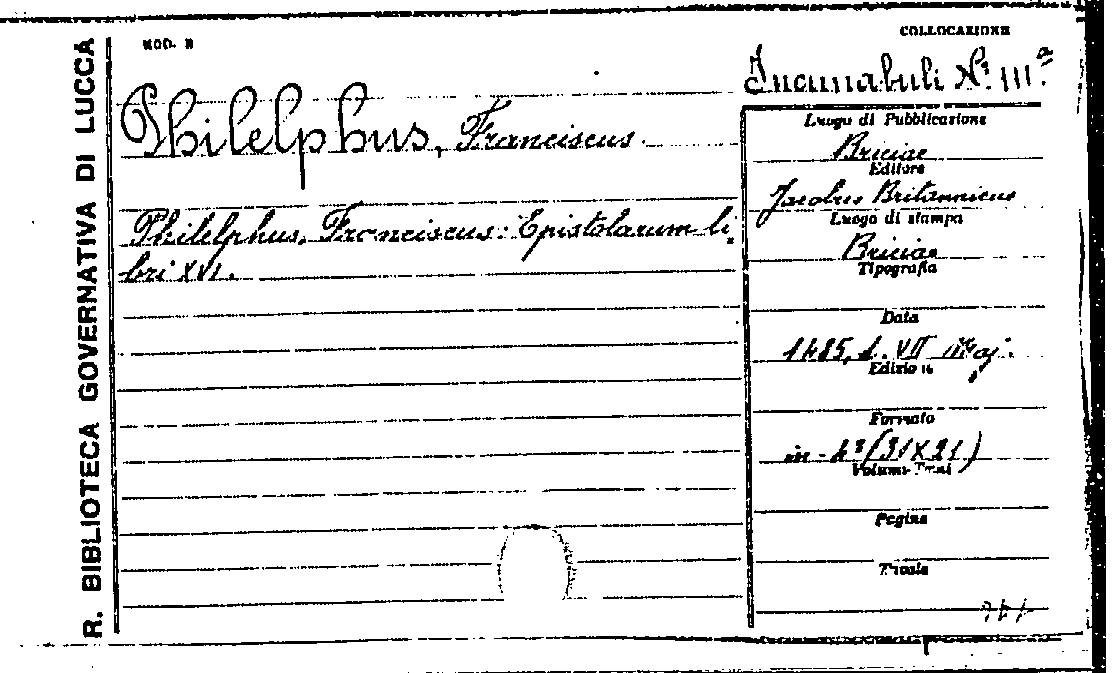 R. BIBLIOTECA GOVERNATIVA DI LUCCA
MOD. B
COLLOCAZIONE
Incunabuli N.° 111.a
Philelphus, Franciscus.
Philelphus, Franciscus: Epistolarum li
bri XVI.
Luogo di Pubblicazione
Briciae
Editore
Jacobus Britannicus
Luogo di stampa
Briciae
Tipografia
Data
1485, d. VII Maj.
Edizione
Formato
in-4° (31X21)
Volumi-Tomi
Pagine
Tavole